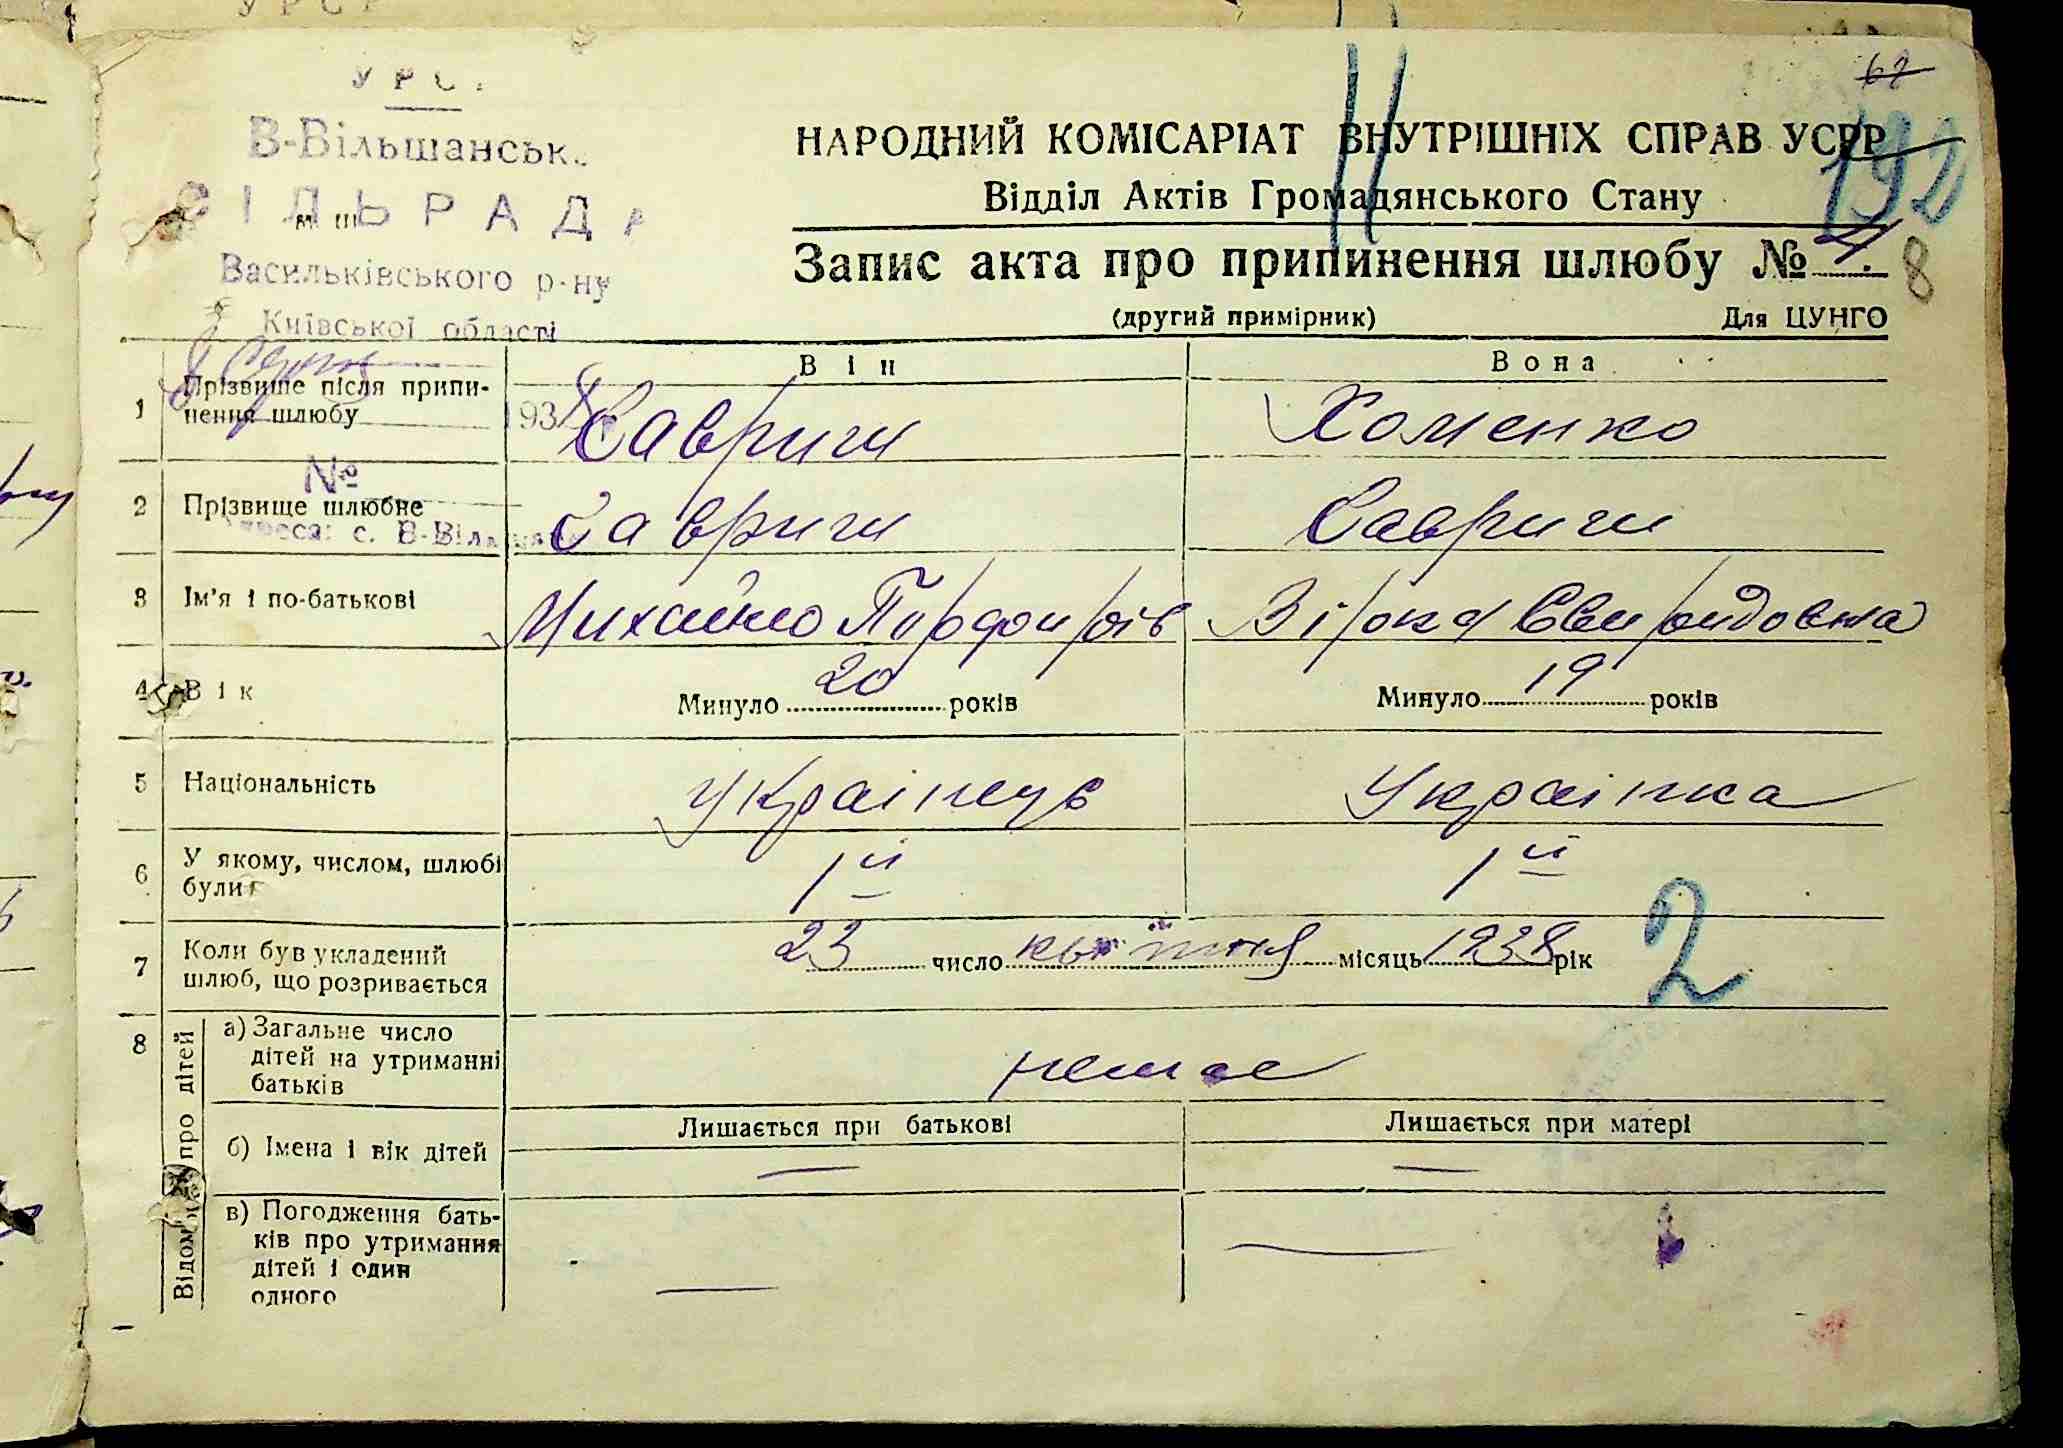 УРС
В-Вільшанськ
СІЛЬРАДА
Васильківського р-ну
Київської області
193
№
с. В-Віл
62
192
8
НАРОДНИЙ КОМІСАРІАТ ВНУТРІШНІХ СПРАВ УСРР
Відділ Актів Громадянського Стану
Запис акта про припинення шлюбу №
(другий примірник) Для ЦУНГО
Він Вона
1 Прізвище після припи-
нення шлюбу Савриш Хоменко
2 Прізвище шлюбне Савриш Савриш
3 Ім'я і по-батькові Михайло
4 Вік Минуло 20 років Минуло 19 років
5 Національність Українець Українка
6 У якому, числом, шлюбі
були 1й 1й
7 Коли був укладений
шлюб, що розривається 23 число квітня місяць 1938 рік
2
8 Відом про дітей
а) Загальне число
дітей на утриманні
батьків немае
б) Імена і вік дітей Лишається при батькові — Лишається при матері —
в) Погодження бать-
ків про утримання
дітей і один
одного — —